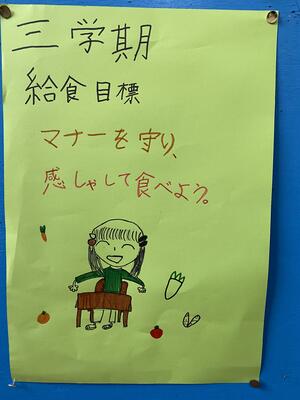 三学期
給食目標
マナーを守り、
感しゃして食べよう。